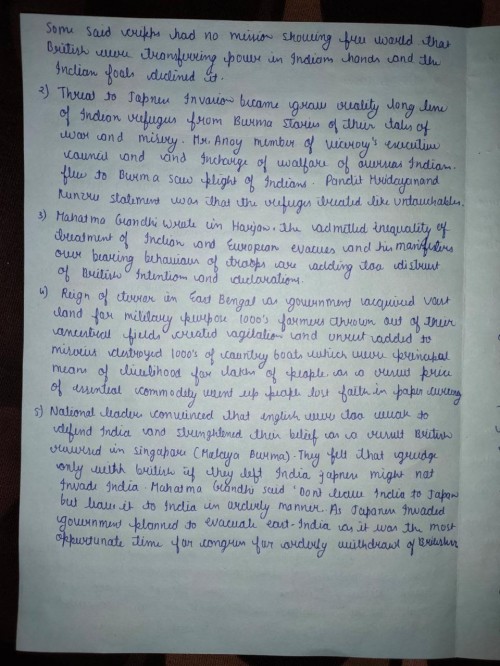 Some said cripps had no mission showing free world that
British were transferring power in Indian hands and the
Indian fools declined it.
2) Threat to Japnese Invasion became grave reality long line
of Indian refugees from Burma stories of their tales of
war and misery. Mr. Aney member of viceroy's executive
council and and Incharge of walfare of overseas Indians.
flew to Burma saw plight of Indians. Pandit Hridayanand
Kunzru statement was that the refuges treated like untouchables.
3) Mahatma Gandhi wrote in Harijan. the admitted inequality of
treatment of Indian and European evacues and his manifesters
over bearing behaviour of troops are adding too distrust
of British Intentions and declarations.
4) Reign of terror in East Bengal as government acquired vast
land for military purpose 1000's farmers thrown out of their
ancestral fields created agitation and unrest added to
miseries destroyed 1000's of country boats which were prinicpal
means of livelihood for lakhs of people. as a result price
of essential commodity went up people lost faith in paper
5) National leader convinced that english were too weak to
defend India and strenghtened their belief as a result British
reversed in singapore (Malaya Burma). They felt that grudge
only with british if they left India japnese might not
Invade India. Mahatma Gandhi said 'Dont leave India to Japan
but leave it to India in orderly manner. As Japanese Invaded
government planned to evacuate east-India as it was the most
oppurtunate time for congress for orderly withdrawl of Britishers